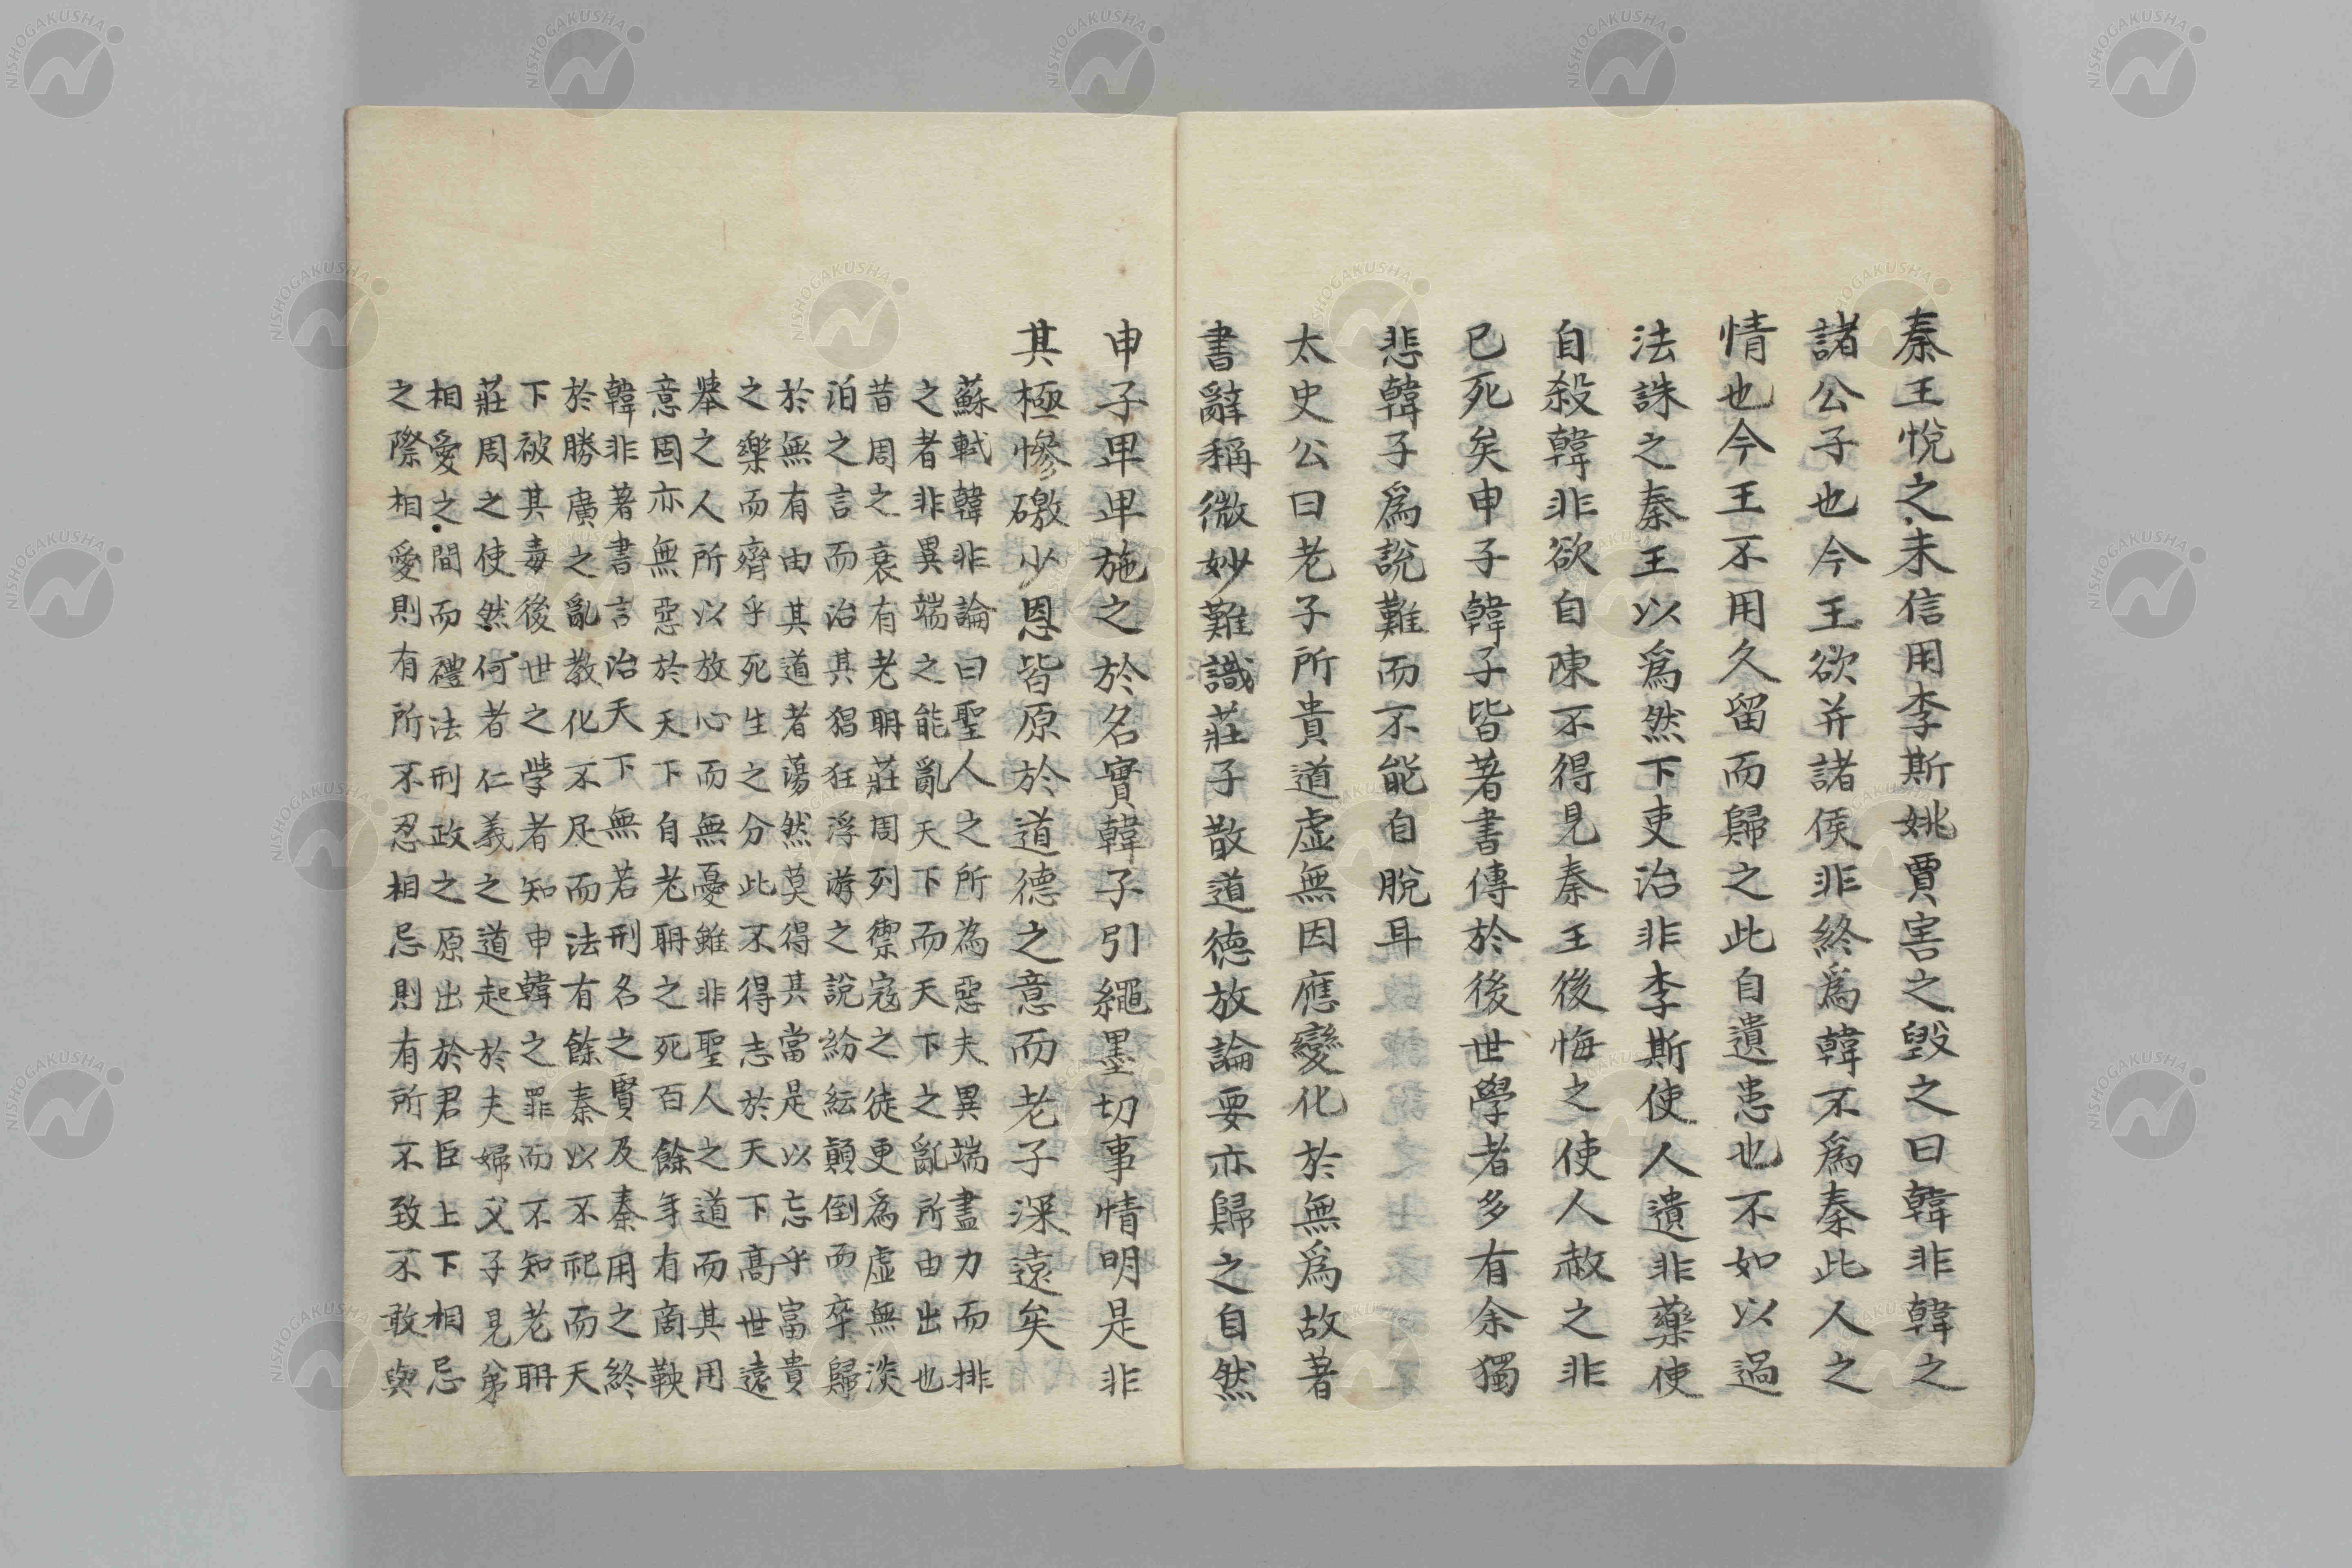 秦王悅之未信用李斯姚賈害之毀之曰韓非韓之
諸公子也今王欲并諸侯非終爲韓不爲秦此人之
情也今王不用久留而歸之此自遺患也不如以過
法誅之秦王以爲然下吏治非李斯使人遺非藥使
自殺韓非欲自陳不得見秦王後悔之使人赦之非
已死矣申子韓子皆著書傳於後世學者多有余獨
悲韓子爲說難而不能自脫耳
太史公曰老子所貴道虛無因應變化於無爲故著
書辭稱微妙難識莊子散道德放論要亦歸之自然
申子卑卑施之於名實韓子引繩墨切事情明是非
其極慘礉少恩皆原於道德之意而老子深遠矣
蘇軾韓非論曰聖人之所為惡夫異端盡力而排
之者非異端之能亂天下而天下之亂所由出也
昔周之衰有老聃莊周列禦寇之徒更爲虛無淡
泊之言而治其猖狂浮游之說紛紜顛倒而卒歸
於無有由其道者蕩然莫得其當是以忘乎富貴
之樂而齊乎死生之分此不得志於天下高世遠
舉之人所以放心而無憂雖非聖人之道而其用
意固亦無惡於天下自老聃之死百餘年有商鞅
韓非著書言治天下無若刑名之賢及秦用之終
於勝廣之亂教化不足而法有餘秦以不祀而天
下被其毒後世之學者知申韓之罪而不知老聃
莊周之使然何者仁義之道起於夫婦父子兄弟
相愛之間而禮法刑政之原出於君臣上下相忌
之際相愛則有所不忍相忌則有所不致不敢與
NISHOGAKUSHA